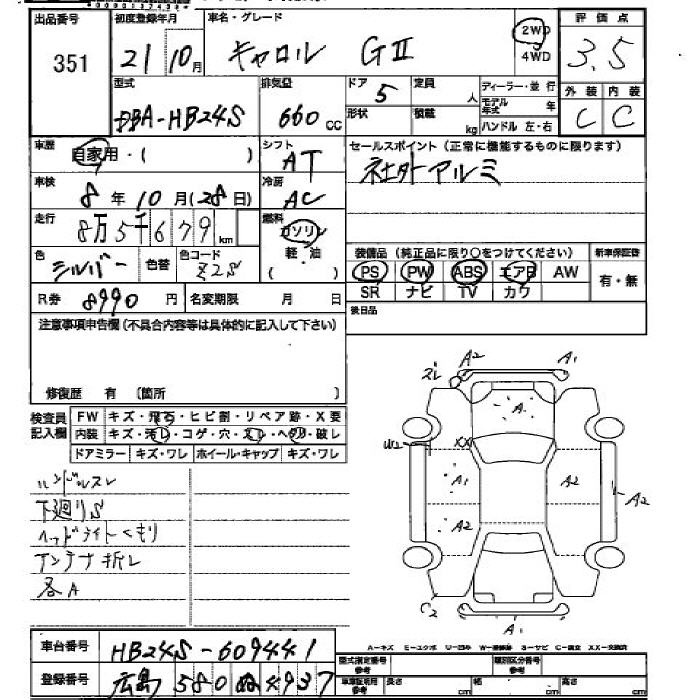 出品番号 初度登録年月 車名・グレード 評価点
351 21 10月 キャロル GⅡ 2WD 4WD 3.5
型式 排気量 ドア 定員 ディーラー・並行 外装 内装
DBA-HB24S 660 CC 5 人 モデル年式 年 C C
形状 積載 kg ハンドル 左・右
車歴 自家用・( ) シフト AT セールスポイント(正常に機能するものに限ります)
車検 8年10月(28日) 冷房 AC 社外アルミ
走行 8万5千679km 燃料 ガソリン
色 シルバー 色替 色コード Z2S 軽・油 ( )
装備品(純正品に限り○をつけてください) 新車保証書
PS PW ABS エアB AW 有・無
SR ナビ TV カワ
R券 8990円 名変期限 月 日 後日品
注意事項申告欄(不具合内容等は具体的に記入して下さい)
修復歴 有 〔箇所 〕
検査員記入欄 FW キズ・飛石・ヒビ割・リペア跡・X要
内装 キズ・汚レ・コゲ・穴・スレ・ヘタリ・破レ
ドアミラー キズ・ワレ ホイール・キャップ キズ・ワレ
ハンドルスレ
下廻りS
ヘッドライトくもり
アンテナ折レ
各A
A2 A1
スレ
A
W2 XX
A1 A2 A2
A2
C2 A1
A-キズ E-エクボ U-凹み W-補修跡 S-サビ C-腐食 XX-交換済
車台番号 HB24S-609441
登録番号 広島 580 ぬ 4937
型式指定番号 参考 類別区分番号 参考
車庫証明用 参考 長さ cm 幅 cm 高さ cm